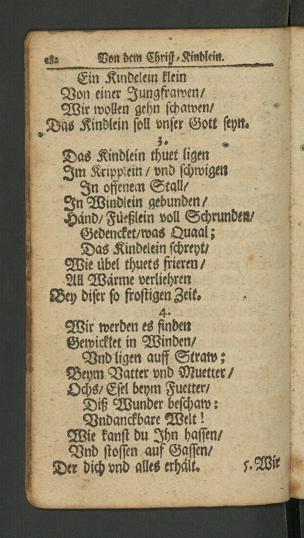 182 Von dem Christ-Kindlein.
Ein Kindelein klein
Von einer Jungfrawen/
Wir wollen gehn schawen/
Das Kindlein soll vnser Gott seyn.
3.
Das Kindlein thuet ligen
Im Kripplein/ vnd schwigen
In offenem Stall/
In Windlein gebunden/
Händ/ Füeßlein voll Schrunden/
Gedencket/was Quaal;
Das Kindelein schreyt/
Wie übel thuets frieren/
All Wärme verliehren
Bey diser so frostigen Zeit.
4.
Wir werden es finden
Gewicklet in Winden/
Vnd ligen auff Straw;
Beym Vatter vnd Muetter/
Ochs/ Esel beym Fuetter/
Diß Wunder beschaw:
Vndanckbare Welt!
Wie kanst du Ihn hassen/
Vnd stossen auf Gassen/
Der dich vnd alles erhält.
5. Wir